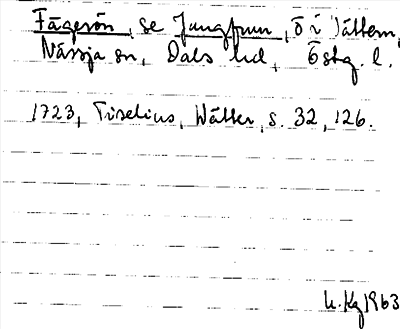 Fågerön, se Jungfrun, ö i Vättern,
Nässja sn, Dals hd, Östg. l.
1723, Tiselius, Wätter, s. 32, 126.
1963